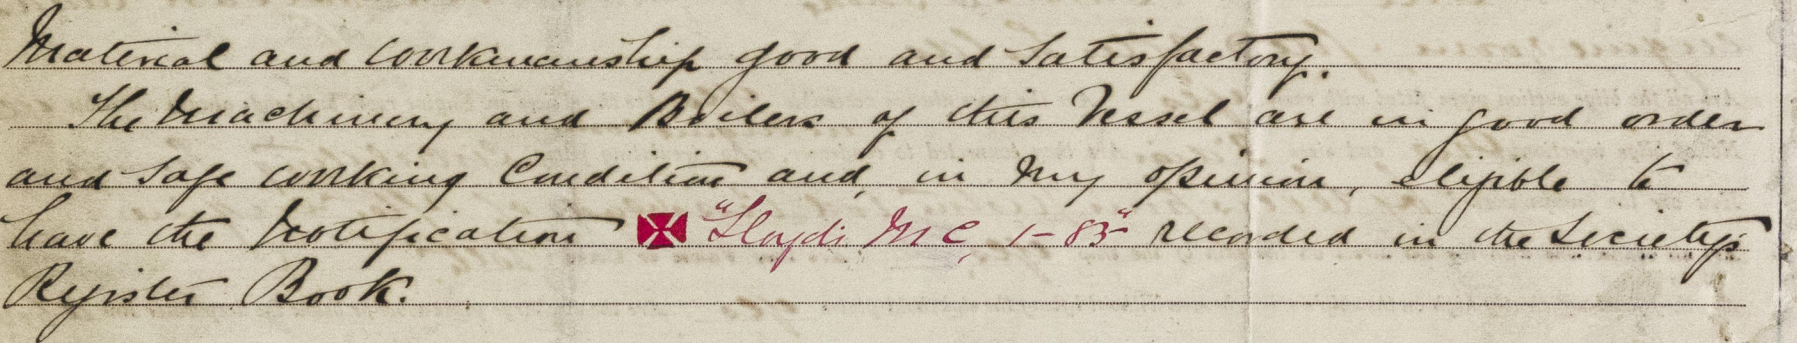 Material and workmanship good and Satisfactory.
The Machinery and Boilers of this Vessel are in good order
and Safe working Condition and, in my opinion, eligible to
have the Notification ✠ "Lloyds M C, 1-83" recorded in the Society's
Register Book.